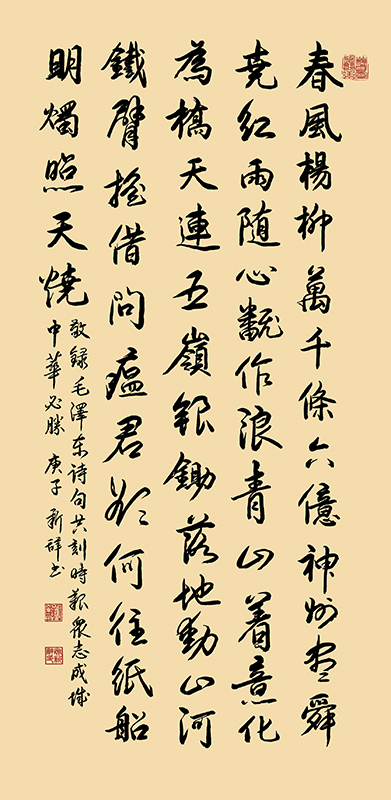 春風楊柳萬千條六億神州盡舜
尭紅雨随心翻作浪青山着意化
為橋天連五嶺銀鋤落地動山河
鐵臂搖借問瘟君欲何往紙船
明燭照天燒
敬録毛澤东诗句共刻時艱衆志成城
中華必勝 庚子 新辞书